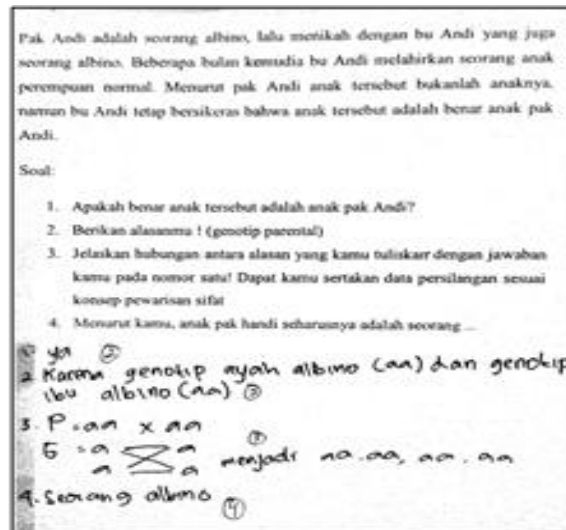 Pak Andi adalah seorang albino, lalu menikah dengan bu Andi yang juga
seorang albino. Beberapa bulan kemudia bu Andi melahirkan seorang anak
perempuan normal. Menurut pak Andi anak tersebut bukanlah anaknya,
namun bu Andi tetap bersikeras bahwa anak tersebut adalah benar anak pak
Andi.
Soal:
1. Apakah benar anak tersebut adalah anak pak Andi?
2. Berikan alasanmu ! (genotip parental)
3. Jelaskan hubungan antara alasan yang kamu tuliskan dengan jawaban
kamu pada nomor satu! Dapat kamu sertakan data persilangan sesuai
konsep pewarisan sifat
4. Menurut kamu, anak pak handi seharusnya adalah seorang ...
1. ya
2. Karena genotip ayah albino (aa) dan genotip
ibu albino (aa)
3. P = aa x aa
G = a a
a a menjadi aa, aa, aa, aa
4. Seorang albino